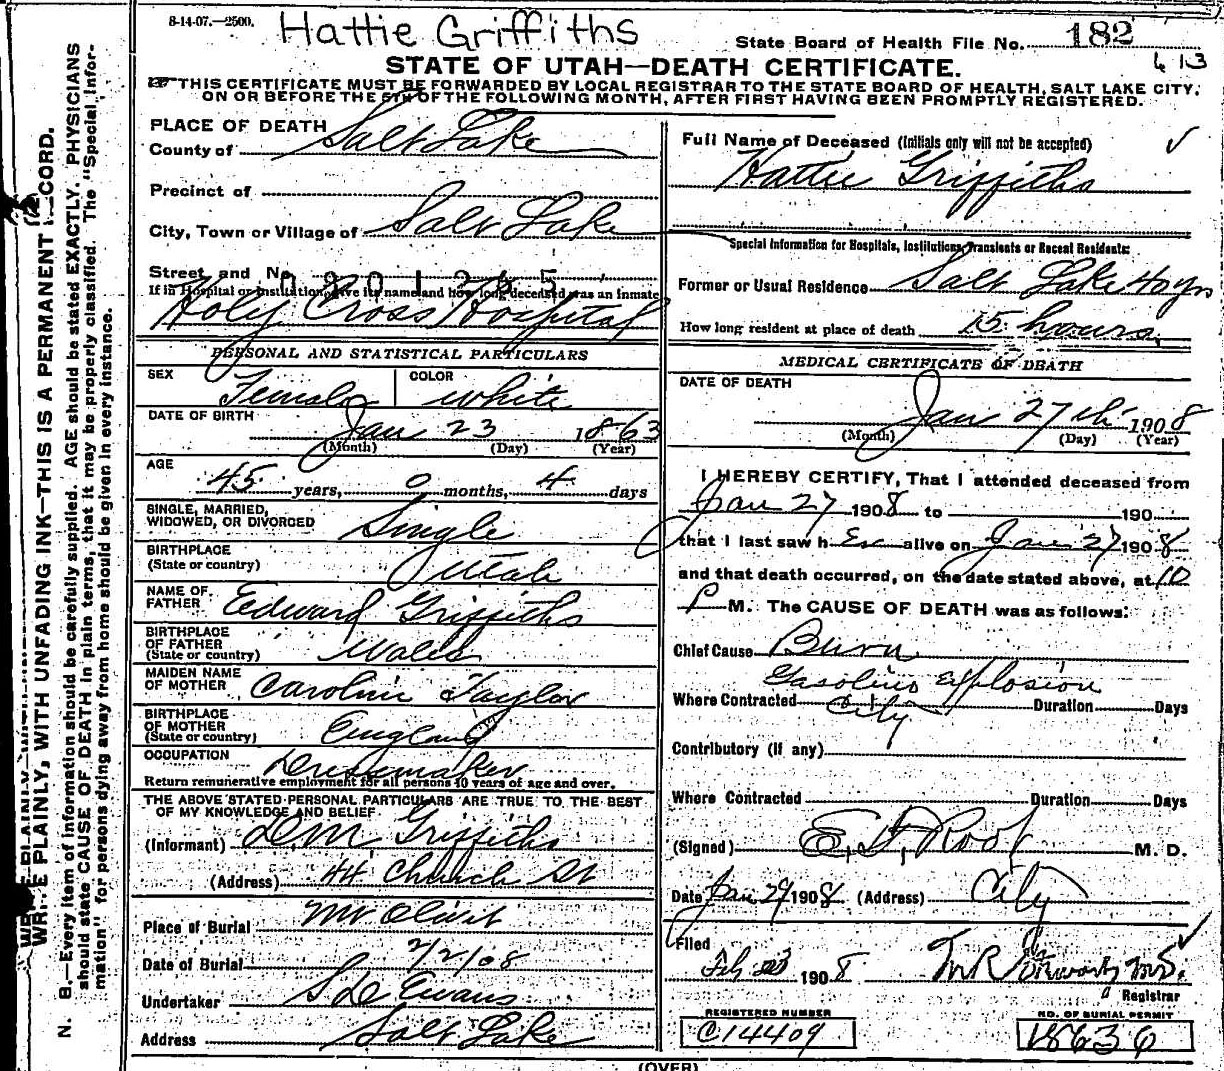 8-14-07.—2500.
Hattie Griffiths
State Board of Health File No. 182
613
STATE OF UTAH—DEATH CERTIFICATE.
THIS CERTIFICATE MUST BE FORWARDED BY LOCAL REGISTRAR TO THE STATE BOARD OF HEALTH, SALT LAKE CITY,
ON OR BEFORE THE 5TH OF THE FOLLOWING MONTH, AFTER FIRST HAVING BEEN PROMPTLY REGISTERED.
PLACE OF DEATH
County of Salt Lake
Precinct of
City, Town or Village of Salt Lake
Street and No.
If in Hospital or Institution, give its name and how long deceased was an inmate
Holy Cross Hospital
PERSONAL AND STATISTICAL PARTICULARS
SEX Female COLOR White
DATE OF BIRTH
Jan 23 1863
(Month) (Day) (Year)
AGE
45 years, 0 months, 4 days
SINGLE, MARRIED,
WIDOWED, OR DIVORCED Single
BIRTHPLACE
(State or country) Utah
NAME OF
FATHER Edward Griffiths
BIRTHPLACE
OF FATHER
(State or country) Wales
MAIDEN NAME
OF MOTHER Caroline Taylor
BIRTHPLACE
OF MOTHER
(State or country) England
OCCUPATION Dressmaker
Return remunerative employment for all persons 10 years of age and over.
THE ABOVE STATED PERSONAL PARTICULARS ARE TRUE TO THE BEST
OF MY KNOWLEDGE AND BELIEF
(Informant) D.M. Griffiths
(Address) 44 Church St
Place of Burial Mt Olivet
Date of Burial 2/2/08
Undertaker S D Evans
Address Salt Lake
Full Name of Deceased (Initials only will not be accepted)
Hattie Griffiths
Special Information for Hospitals, Institutions, Transients or Recent Residents:
Former or Usual Residence Salt Lake
How long resident at place of death 15 hours
MEDICAL CERTIFICATE OF DEATH
DATE OF DEATH
Jan 27th 1908
(Month) (Day) (Year)
I HEREBY CERTIFY, That I attended deceased from
Jan 27 1908 to 190
that I last saw h alive on Jan 27 1908
and that death occurred, on the date stated above, at 10
P M. The CAUSE OF DEATH was as follows:
Chief Cause Burn
Gasoline explosion
Where Contracted City Duration Days
Contributory (if any)
Where Contracted Duration Days
(Signed) E. F. Root M. D.
Date Jan 29 1908 (Address) City
Filed
Feb 1908
Registrar
REGISTERED NUMBER
C14409
NO. OF BURIAL PERMIT
18636
(OVER)
WRITE PLAINLY, WITH UNFADING INK—THIS IS A PERMANENT RECORD.
N. B.—Every item of information should be carefully supplied. AGE should be stated EXACTLY. PHYSICIANS
should state CAUSE OF DEATH in plain terms, that it may be properly classified. The "Special Infor-
mation" for persons dying away from home should be given in every instance.